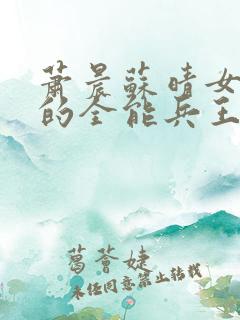 蕭晨蘇晴女
的全能兵王
葛薈婕
未经同意禁止转载